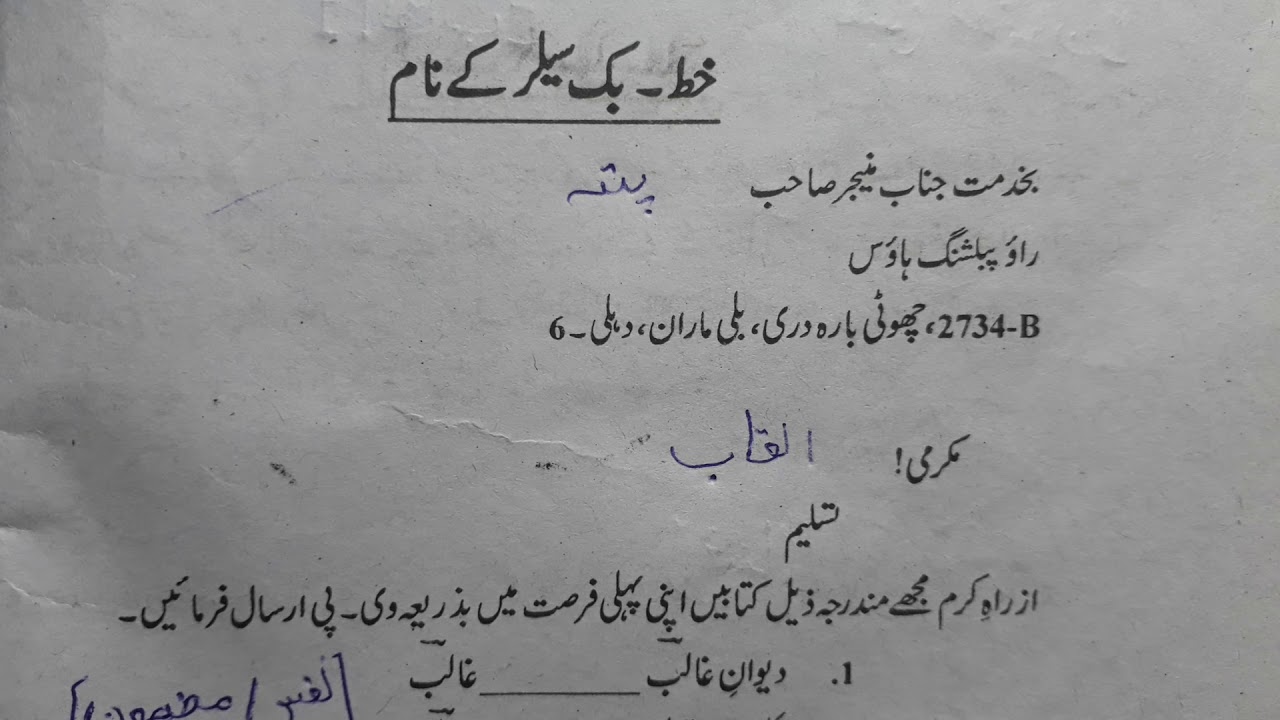 خط۔ بک سیلر کے نام
بخدمت جناب منیجر صاحب پتہ
راؤ پبلشنگ ہاؤس
2734-B، چھوٹی بارہ دری، بلی ماران، دہلی۔ 6
مکرمی! القاب
تسلیم
از راہِ کرم مجھے مندرجہ ذیل کتابیں اپنی پہلی فرصت میں بذریعہ وی۔ پی ارسال فرمائیں۔
1. دیوانِ غالب ________ غالب